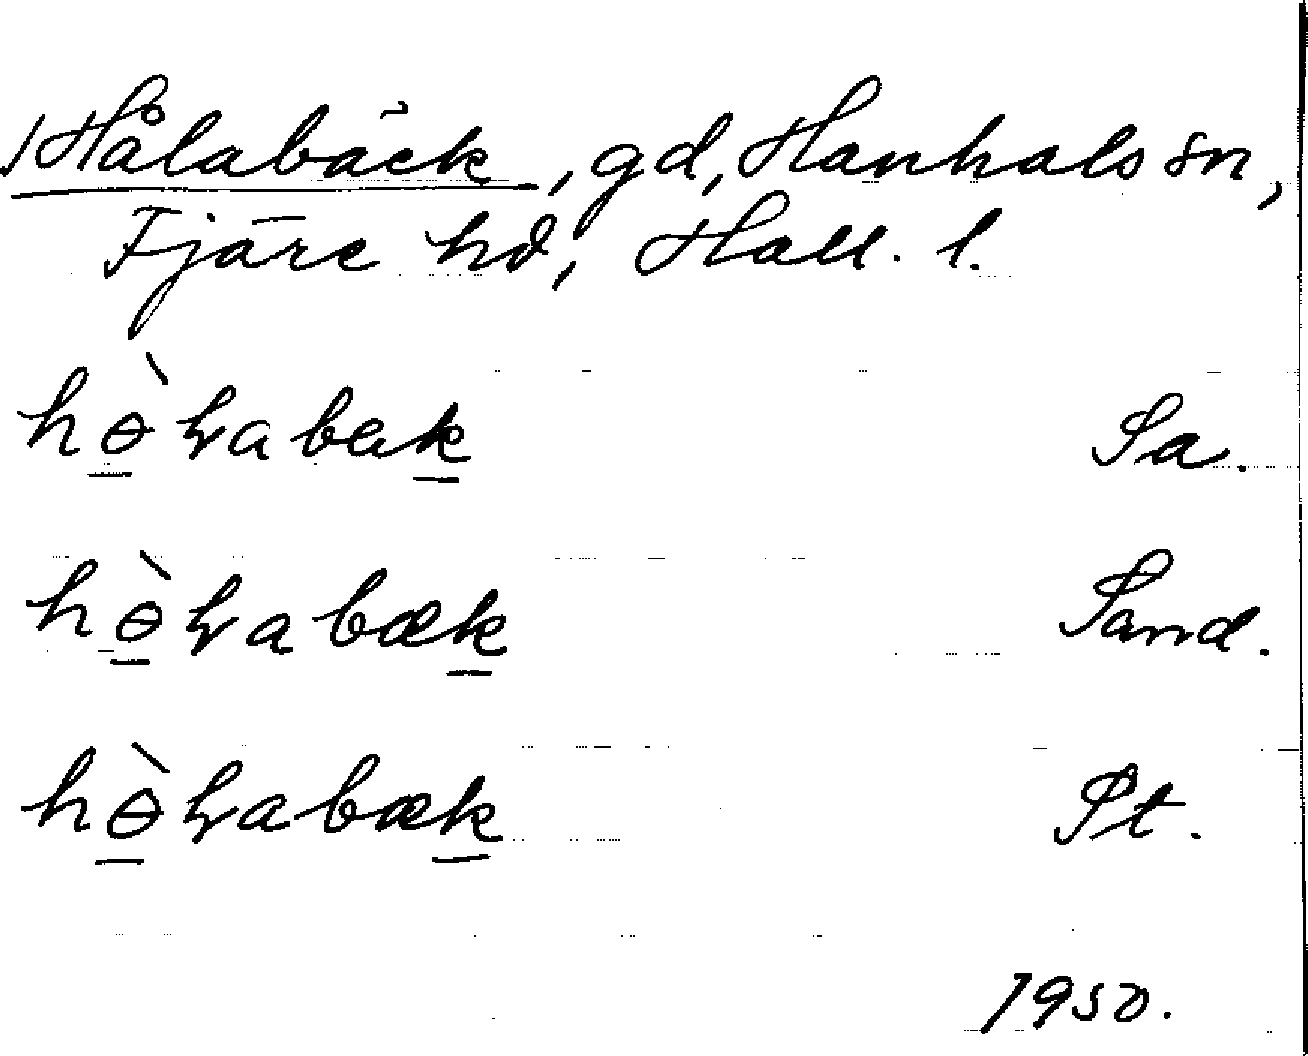 Hålabäck, gd, Hanhals sn,
Fjäre hd, Hall. l.
hɵ̀ɽabæk Sa.
hɵ̀ɽabæk Sand.
hɵ̀ɽabæk St.
1950.